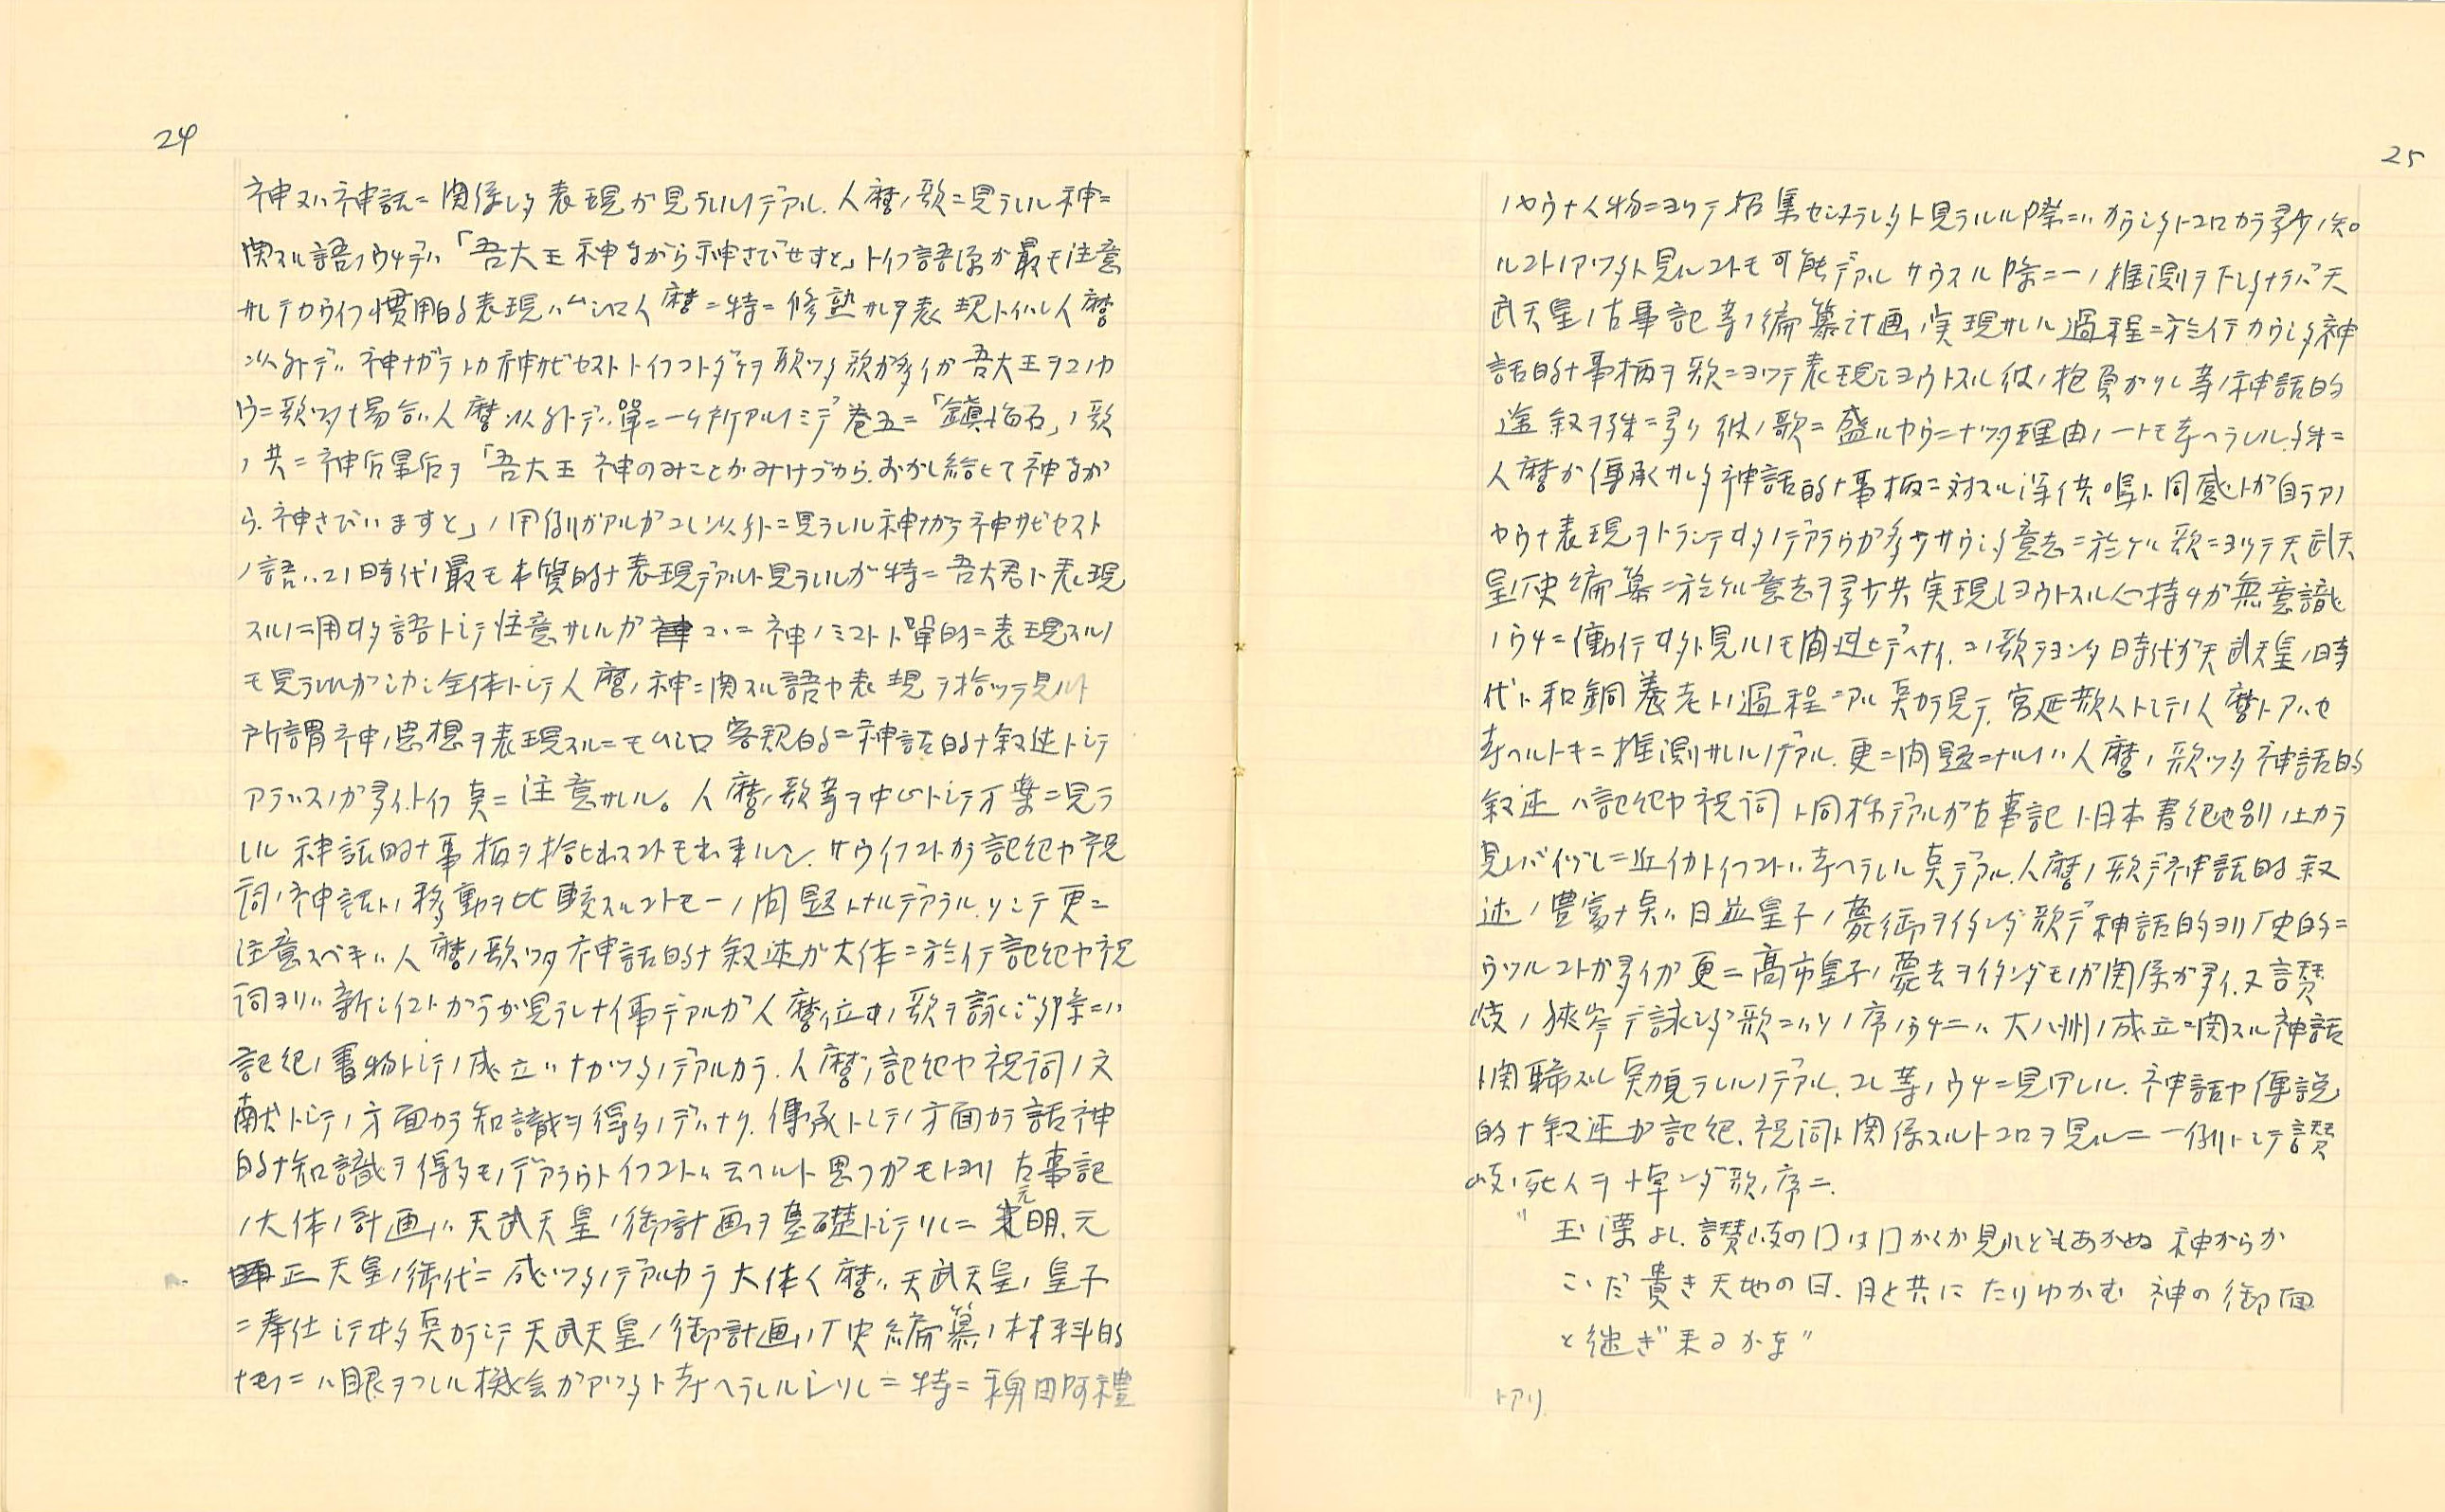 24
神又ハ神話ニ関係シタ表現ガ見ラレルノデアル.人麿ノ歌ニ見ラレル神ニ
関スル語ノウチデハ「吾大王神ながら神さびせすと」トイフ語源ガ最モ注意
サレテカウイフ慣用的ナ表現ハムシロ人麿ニ特ニ修熟サレタ表現トイハレ人麿
以外デハ神ナガラトカ神サビセストトイフコトダケヲ歌ツタ歌ガ多イガ吾大王ヲコノカ
ウニ歌ツタ場合ハ人麿以外デハ單ニ一ケ所アルノミデ巻五ニ「鎮懐石」ノ歌
ノ共ニ神后皇后ヲ「吾大王神のみことがみけづから.おかし給ヒて神なか
ら.神さびいますと」ノ用例ガアルガコレ以外ニ見ラレル神ナガラ神サビセスト
ノ語ハコノ時代ノ最モ本質的ナ表現デアルト見ラレルガ特ニ吾大君ト表現
スルノニ用ヰタ語トシテ注意サレルガコレニ神ノミコトト單的ニ表現スルノ
モ見ラレルガシカシ全体トシテ人麿ノ神ニ関スル語ヤ表現ヲ拾ツテ見ルト
所謂神ノ思想ヲ表現スルニモムシロ客観的ニ神話的ナ叙述トシテ
アラハスノガ多イ.トイフ点ニ注意サレル。人麿ノ歌等ヲ中心トシテ万葉ニ見ラ
レル神話的ナ事柄ヲ拾ヒ出スコトモ出来ルシ.サウイフコトガラ記紀ヤ祝
詞ノ神話トノ移動ヲ比較スルコトモ一ノ問題トナルデアラウ.ソシテ更ニ
注意スベキハ人麿ノ歌ツタ神話的ナ叙述ガ大体ニ於イテ記紀ヤ祝
詞ヨリハ新シイコトガラガ見ラレナイ事デアルガ人麿位ガノ歌ヲ詠ジタ際ニハ
記紀ノ書物トシテノ成立ハナカツタノデアルカラ.人麿ハ記紀ヤ祝詞ノ文
献トシテノ方面カラ知識ヲ得タノデハナク.傳承トシテノ方面カラ話神
的ナ知識ヲ得タモノデアラウトイフコトハ云ヘルト思フガモトヨリ古事記
ノ大体ノ計画ハ天武天皇ノ御計画ヲ基礎トシテソレニ元明.元
正天皇ノ御代ニ成ツタノデアルカラ大体人麿ハ天武天皇ノ皇子
ニ奉仕シテヰタ点カラシテ天武天皇ノ御計画ノ歴史編纂ノ材料的
ナモノニハ眼ヲフレル機会ガアツタト考ヘラレルシソレニ特ニ稗田阿禮
25
ノヤウナ人物ニヨツテ招集セシメラレタト見ラルル際ニハカウシタトコロカラ多少ノ知
ルコトノアツタト見ルコトモ可能デアルサウスル際ニ一ノ推測ヲ下シタナラバ天
武天皇ノ古事記等ノ編纂計画ノ実現サレル過程ニ於イテカウシタ神
話的ナ事柄ヲ歌ニヨツテ表現シヨウトスル彼ノ抱負ガソレ等ノ神話的
ナ叙ヲ殊ニ多ク彼ノ歌ニ盛ルヤウニナツタ理由ノ一トモ考ヘラレル.殊ニ
人麿ガ傳承サレタ神話的ナ事柄ニ対スル深イ共鳴ト同感トガ自ラアノ
ヤウナ表現ヲトラシテヰタノデアラウガ多少サウシタ意志ニ於ケル歌ニヨツテ天武天
皇ノ歴史編纂ニ於ケル意志ヲ多少共実現シヨウトスル心持チガ無意識
ノウチニ働イテヰタト見ルノモ間違ヒデハナイ.コノ歌ヲヨンダ時代ガ天武天皇ノ時
代ト和銅養老トノ過程ニアル点カラ見テ.宮廷歌人トシテノ人麿トアハセ
考ヘルトキニ推測サレルノデアル.更ニ問題ニナルノハ人麿ノ歌ツタ神話的
叙述ハ記紀ヤ祝詞ト同様デアルガ古事記ト日本書紀ノ区別ノ上カラ
見レバイヅレニ近イカトイフコトハ考ヘラレル点デアル.人麿ノ歌デ神話的叙
述ノ豊富ナ点ハ日並皇子ノ薨御ヲイタンダ歌デ神話的ヨリ歴史的ニ
ウツルコトガ多イガ更ニ高市皇子ノ薨去ヲイタンダモノガ関係ガ多イ.又讃
岐ノ狭岑デ詠ジタ歌ニハソノ序ノウチニハ大八州ノ成立ニ関スル神話
ト関聯スル点ガ見ラレルノデアル.コレ等ノウチニ見ヱレル.神話ヤ傳説
的ナ叙述ガ記紀.祝詞ト関係スルトコロヲ見ルニ一例トシテ讃
岐ノ死人ヲ悼ンダ歌ノ序ニ.
"玉藻よし.讃岐の口は口かくか見れどもあかぬ 神からか
こゝだ貴き天地の日.月と共にたりゆかむ 神の御面
と継ぎ来るかな"
トアリ.